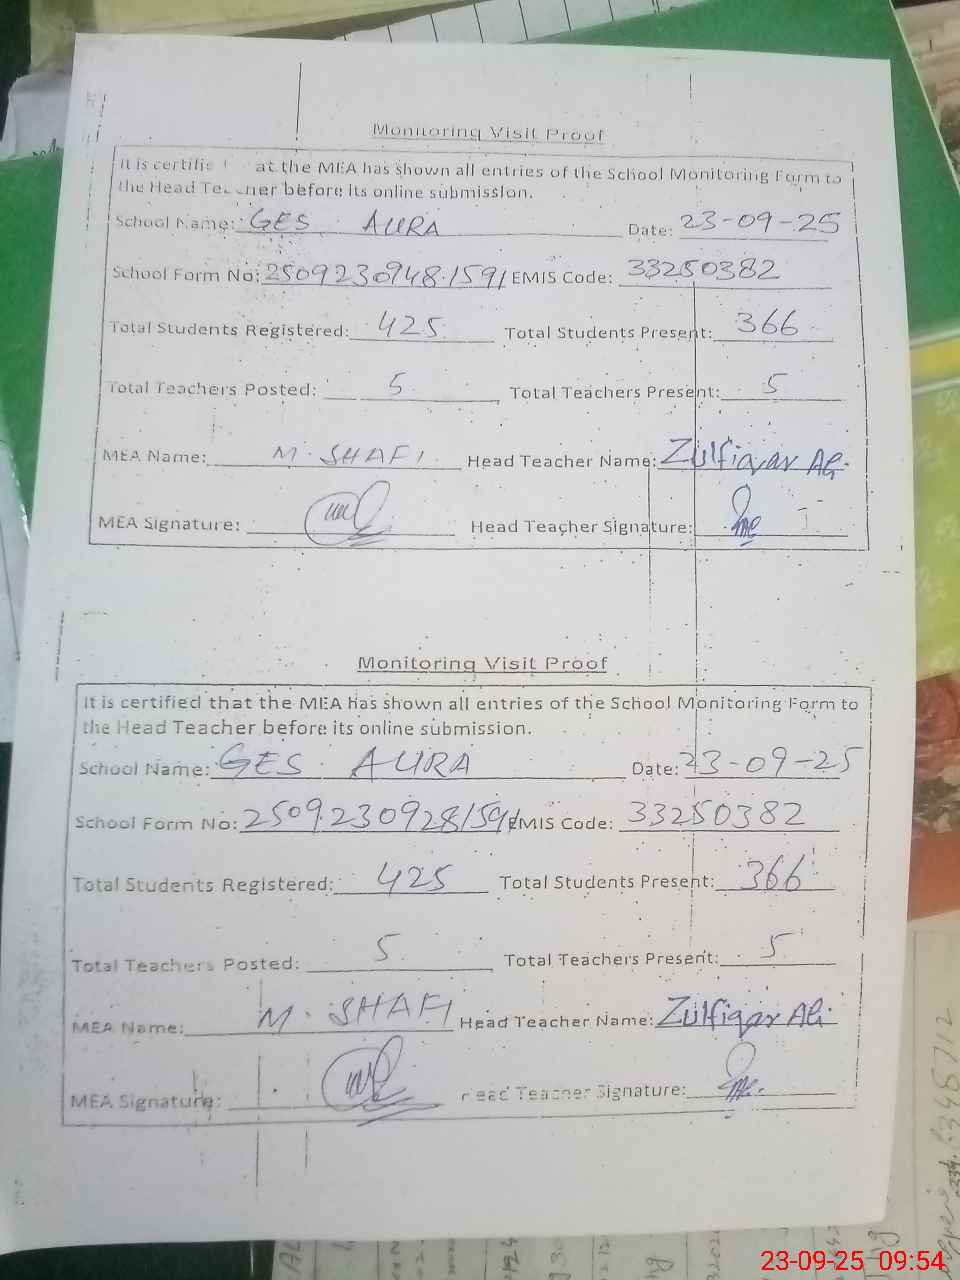 Monitoring Visit Proof
It is certifie at the MEA has shown all entries of the School Monitoring Form to
the Head Teacher before its online submission.
School Name: GES AURA Date: 23-09-25
School Form No: 25092309481591 EMIS Code: 33250382
Total Students Registered: 425 Total Students Present: 366
Total Teachers Posted: 5 Total Teachers Present: 5
MEA Name: M. SHAFI Head Teacher Name: Zulfiqar Ali
MEA Signature: Head Teacher Signature:
Monitoring Visit Proof
It is certified that the MEA has shown all entries of the School Monitoring Form to
the Head Teacher before its online submission.
School Name: GES AURA Date: 23-09-25
School Form No: 25092309281591 EMIS Code: 33250382
Total Students Registered: 425 Total Students Present: 366
Total Teachers Posted: 5 Total Teachers Present: 5
MEA Name: M. SHAFI Head Teacher Name: Zulfiqar Ali
MEA Signature: Head Teacher Signature:
23-09-25 09:54